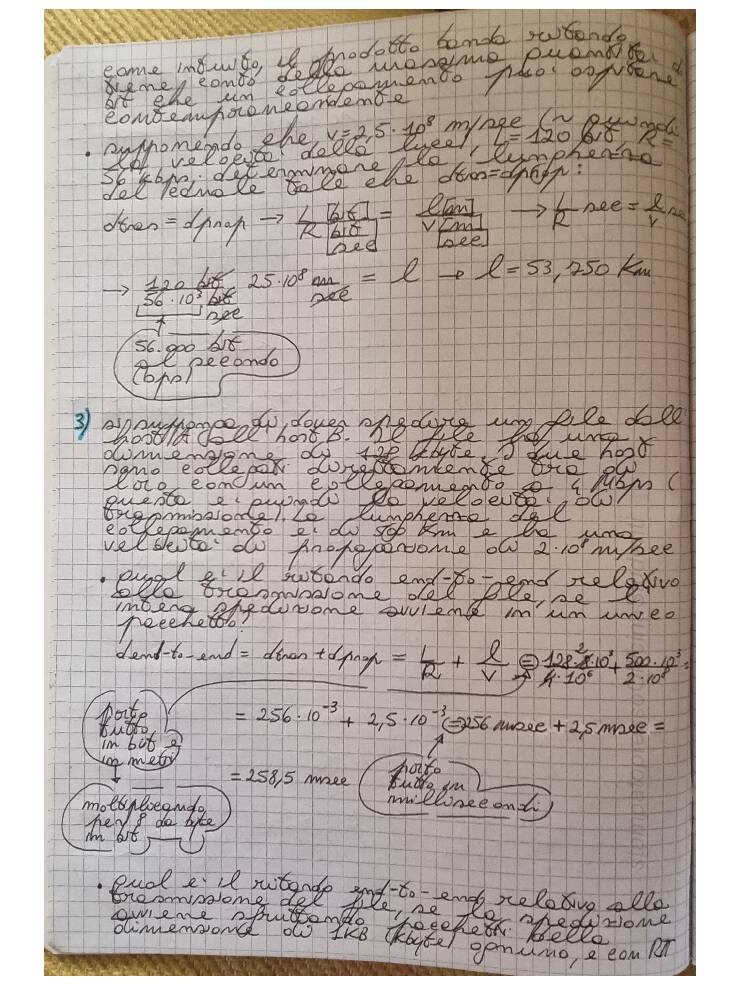 come intuito, il prodotto banda ritardo
tiene conto della massima quantità di
bit che un collegamento può ospitare
contemporaneamente
• supponendo che v=2,5·10⁸ m/sec (~
la velocità della luce), L=120 bit, R=
56 kbps. determinare la lunghezza
del canale tale che dtras=dprop:
dtras = dprop → L/R [bit]/[bit/sec] = l[m]/v[m/sec] → L/R sec = l/v sec
→ 120 bit/56·10³ bit/sec 25·10⁸ m/sec = l → l = 53,750 Km
56.000 bit
al secondo
(bps)
3) si supponga di dover spedire un file dall'
host A all'host B. Il file ha una
dimensione di 128 kbyte, i due host
sono collegati direttamente tra di
loro con un collegamento a 4 Mbps (
questa è quindi la velocità di
trasmissione). La lunghezza del
collegamento è di 500 Km e ha una
velocità di propagazione di 2·10⁸ m/sec
• qual è il ritardo end-to-end relativo
alla trasmissione del file, se l'
intera spedizione avviene in un unico
pacchetto?
dend-to-end = dtras + dprop = L/R + l/v = 128·8·10³/4·10⁶ + 500·10³/2·10⁸ =
porto
tutto
in bit e
in metri
= 256·10⁻³ + 2,5·10⁻³ = 256 msec + 2,5 msec =
= 258,5 msec
porto
tutto in
millisecondi
moltiplicando
per 8 da byte
in bit
• qual è il ritardo end-to-end relativo alla
trasmissione del file, se la spedizione
avviene sfruttando pacchetti della
dimensione di 1KB (kbyte) ognuno, e con RTT